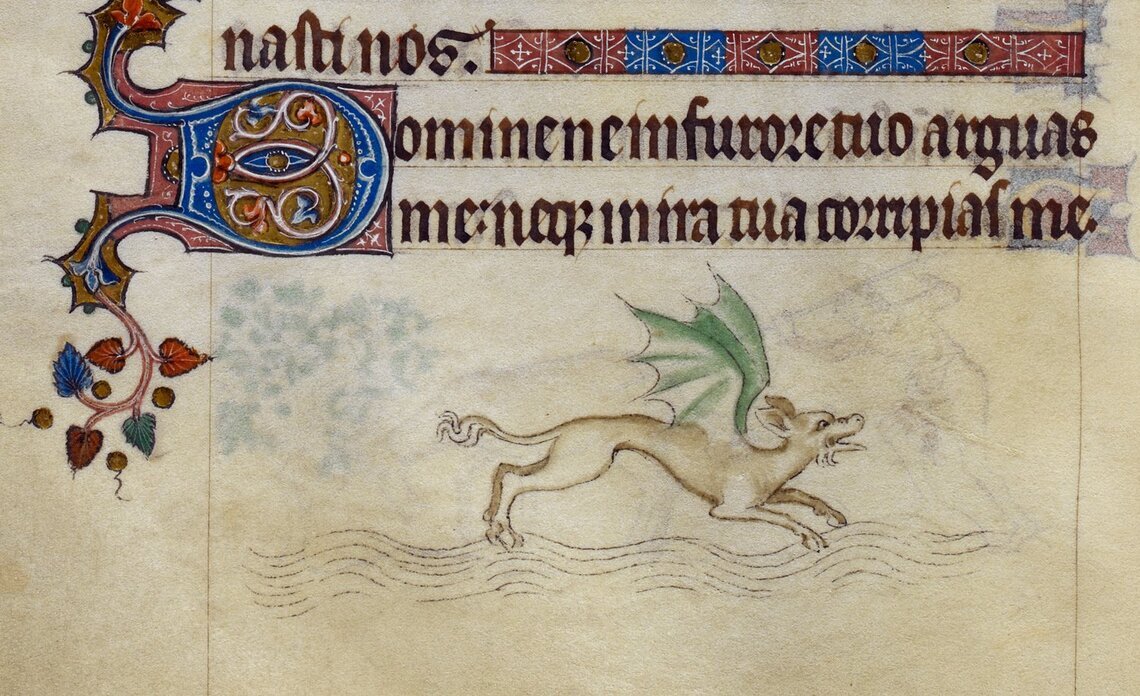 nasti nos.
Domine ne in furore tuo arguas
me: neq; in ira tua corripias me.